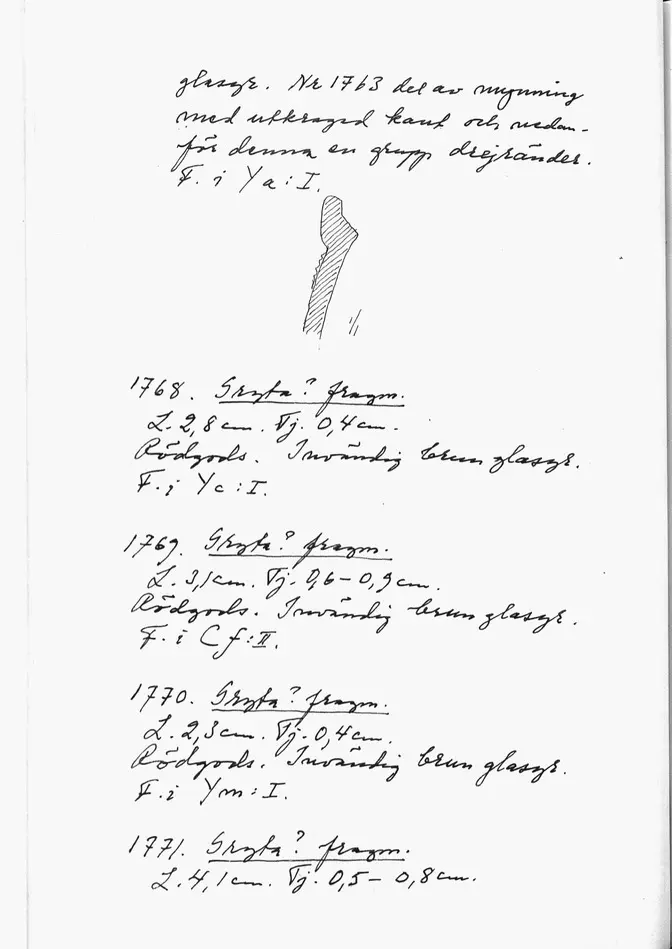 glasyr. Nr 1763 del av mynning
med utkragad kant och nedan-
för denna en grupp drejränder.
F. i Ya:I.
1/1
1768. Gryta? fragm.
L. 2,8 cm. Tj. 0,4 cm.
Rödgods. Invändig brun glasyr.
F. i Yc:I.
1769. Gryta? fragm.
L. 3,1 cm. Tj. 0,6-0,9 cm.
Rödgods. Invändig brun glasyr.
F. i Cf:II.
1770. Gryta? fragm.
L. 2,3 cm. Tj. 0,4 cm.
Rödgods. Invändig brun glasyr.
F. i Ym:I.
1771. Gryta? fragm.
L. 4,1 cm. Tj. 0,5- 0,8 cm.